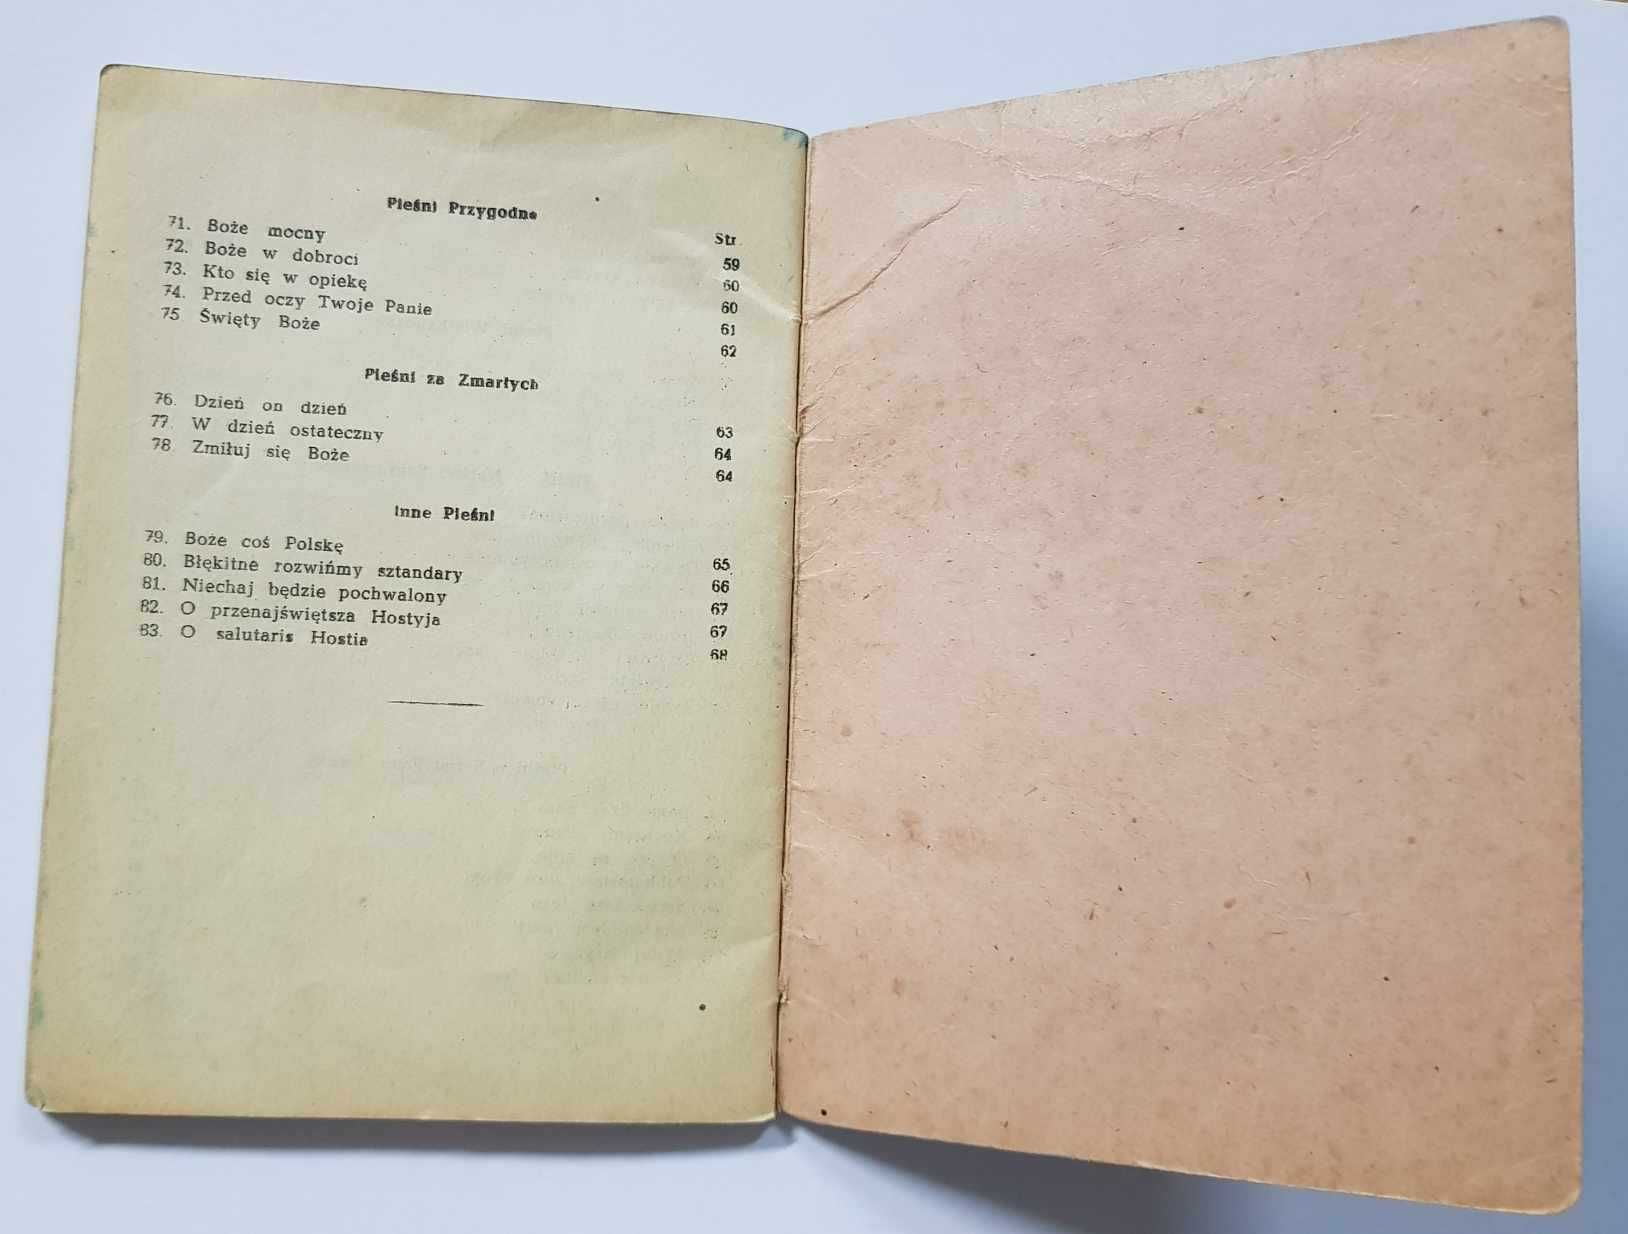 Pieśni Przygodne
Str.
71. Boże mocny 59
72. Boże w dobroci 60
73. Kto się w opiekę 60
74. Przed oczy Twoje Panie 61
75. Święty Boże 62
Pieśni za Zmarłych
76. Dzień on dzień 63
77. W dzień ostateczny 64
78. Zmiłuj się Boże 64
Inne Pieśni
79. Boże coś Polskę 65
80. Błękitne rozwińmy sztandary 66
81. Niechaj będzie pochwalony 67
82. O przenajświętsza Hostyja 67
83. O salutaris Hostia 68